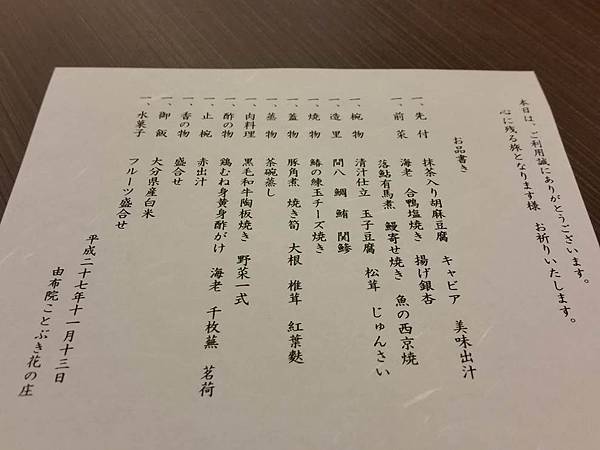 本日は、ご利用誠にありがとうございます。
心に残る旅となります様　お祈りいたします。
お品書き
一、先付　抹茶入り胡麻豆腐　キャビア　美味出汁
一、前菜　海老　合鴨塩焼き　揚げ銀杏
落鮎有馬煮　鰻寄せ焼き　魚の西京焼
一、椀物　清汁仕立　玉子豆腐　松茸　じゅんさい
一、造里　間八　鯛　鮪　関鯵
一、焼物　鰆の練玉チーズ焼き
一、蓋物　豚角煮　焼き筍　大根　椎茸　紅葉麩
一、蒸物　茶碗蒸し
一、肉料理　黒毛和牛陶板焼き　野菜一式
一、酢の物　鶏むね身黄身酢がけ　海老　千枚蕪　茗荷
一、止椀　赤出汁
一、香の物　盛合せ
一、御飯　大分県産白米
一、水菓子　フルーツ盛合せ
平成二十七年十一月十三日
由布院ことぶき花の庄